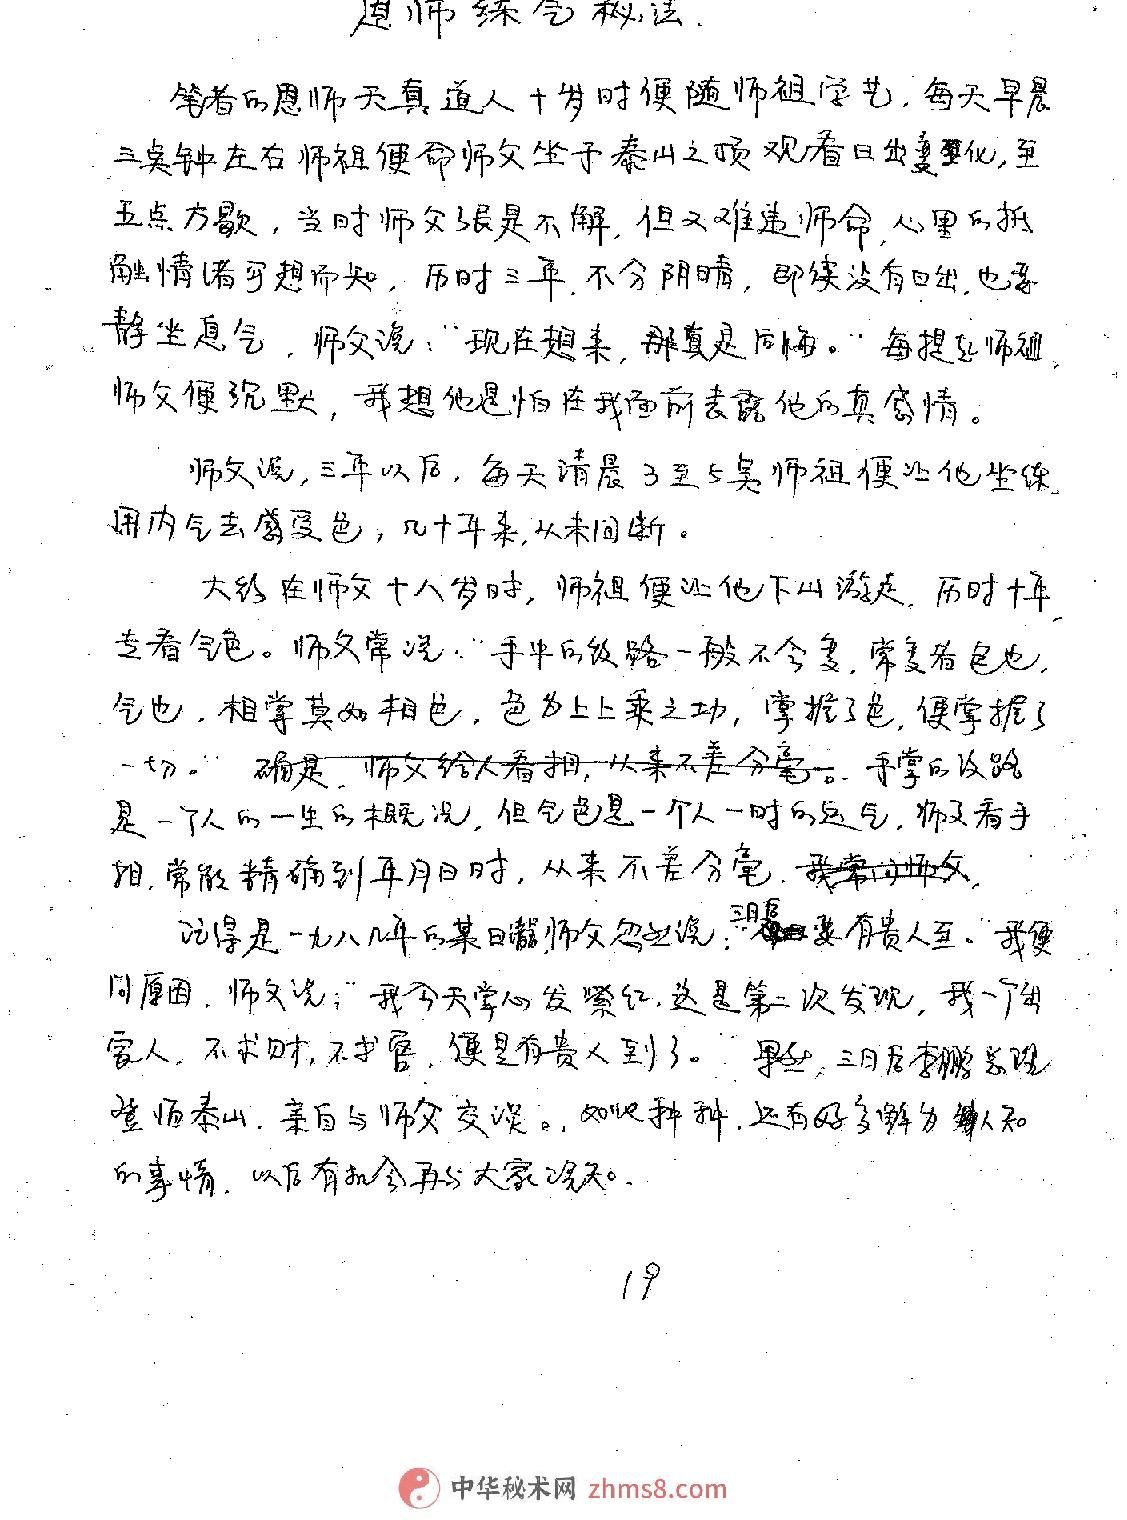 恩师练气秘法.
笔者的恩师天真道人十岁时便随师祖学艺，每天早晨
三点钟左右师祖便命师父坐于泰山之顶观看日出变化，至
五点方歇，当时师父很是不解，但又难违师命，心里的抵
触情绪可想而知，历时三年，不分阴晴，即使没有日出，也要
静坐息气，师父说：“现在想来，那真是后悔。”每提起师祖，
师父便沉默，我想他是怕在我面前表露他的真感情。
师父说，三年以后，每天清晨3至5点师祖便让他坐练
用内气去感受色，几十年来，从未间断。
大约在师父十八岁时，师祖便让他下山游走，历时十年
专看气色。师父常说：“手中的纹路一般不会变，常变者色也，
气也，相掌莫如相色，色为上上乘之功，掌握了色，便掌握了
一切。”确是，师父给人看相，从来不差分毫。手掌的纹路
是一个人的一生的概况，但气色是一个人一时的运气，师父看手
相，常能精确到年月日时，从来不差分毫，我常问师父，
记得是一九八几年的某日，师父忽然说：“三日后要有贵人至。”我便
问原因，师父说：“我今天掌心发紫红，这是第二次发现，我一个出
家人，不求财，不求官，便是有贵人到了。”果然，三日后李鹏总理
登临泰山，亲自与师父交谈。，如此种种，还有好多鲜为人知
的事情，以后有机会再与大家说知。
19
中华秘术网 zhms8.com